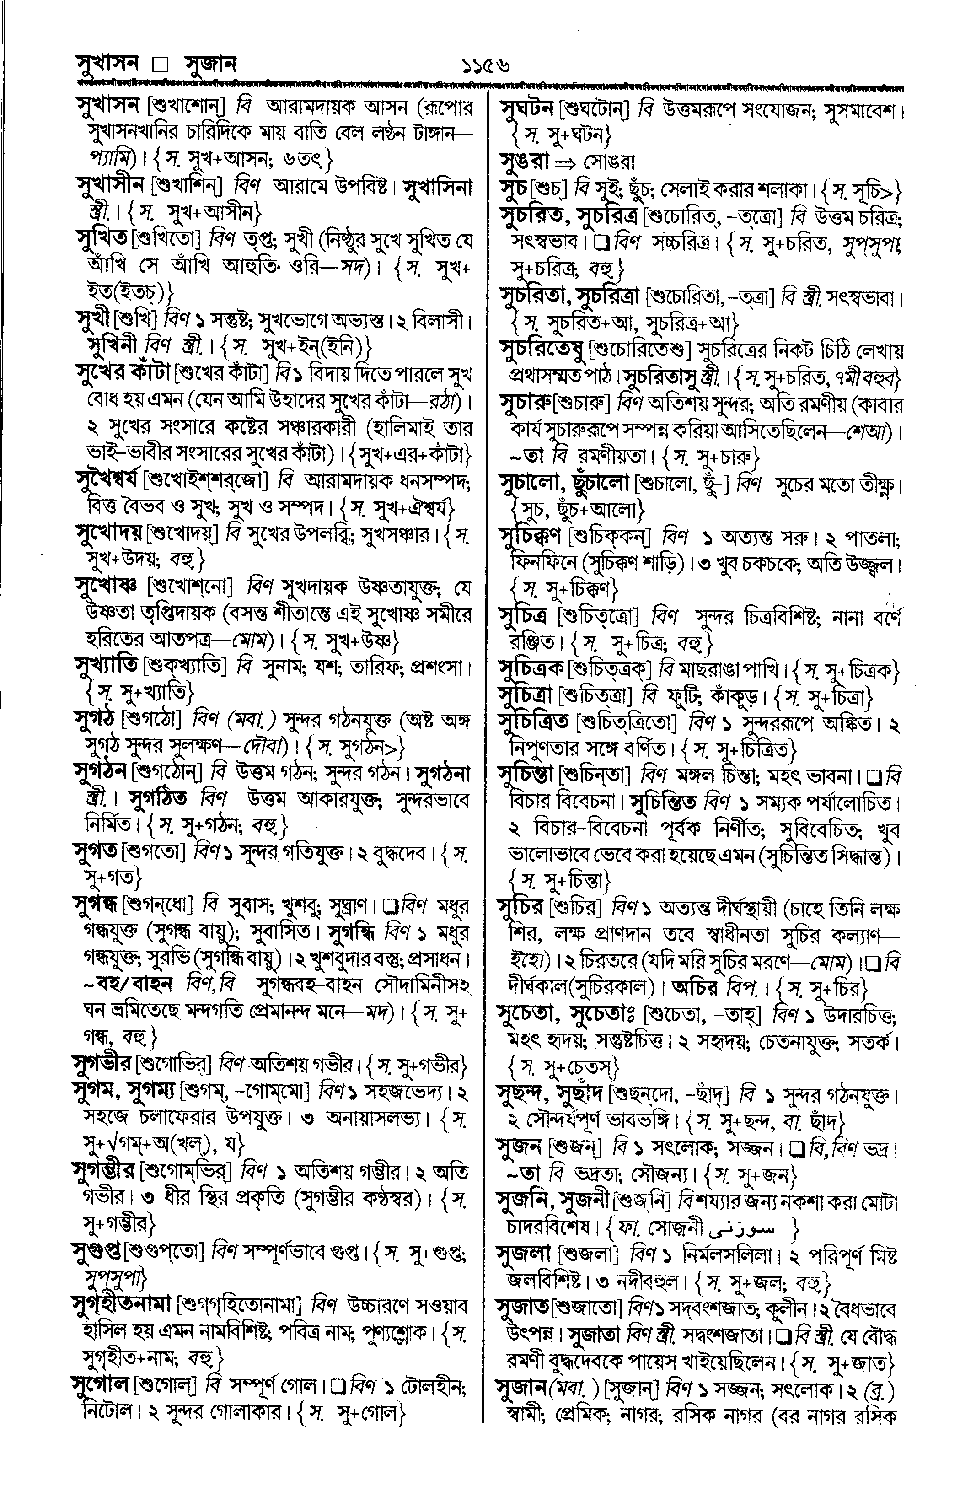 সুখাসন □ সুজান
১১৫৬
সুখাসন [শুখাশোন্] বি আরামদায়ক আসন (রূপোর
সুখাসনখানির চারিদিকে মায় বাতি বেল লণ্ঠন টাঙ্গান—
প্যামি)। {স. সুখ+আসন; ৬তৎ}
সুখাসীন [শুখাশিন্] বিণ আরামে উপবিষ্ট। সুখাসিনা
স্ত্রী.। {স. সুখ+আসীন}
সুখিত [শুখিতো] বিণ তৃপ্ত; সুখী (নিষ্ঠুর সুখে সুখিত যে
আঁখি সে আঁখি আহুতি ওরি—সদ)। {স. সুখ+
ইত(ইতচ্)}
সুখী [শুখি] বিণ ১ সন্তুষ্ট; সুখভোগে অভ্যস্ত। ২ বিলাসী।
সুখিনী বিণ স্ত্রী.। {স. সুখ+ইন্(ইনি)}
সুখের কাঁটা [শুখের্ কাঁটা] বি১ বিদায় দিতে পারলে সুখ
বোধ হয় এমন (যেন আমি উহাদের সুখের কাঁটা—রঠা)।
২ সুখের সংসারে কষ্টের সঞ্চারকারী (হালিমাই তার
ভাই-ভাবীর সংসারের সুখের কাঁটা)। {সুখ+এর+কাঁটা}
সুখৈশ্বর্য [শুখোইশ্‌শর্‌জো] বি আরামদায়ক ধনসম্পদ;
বিত্ত বৈভব ও সুখ; সুখ ও সম্পদ। {স. সুখ+ঐশ্বর্য}
সুখোদয় [শুখোদয়্] বি সুখের উপলব্ধি; সুখসঞ্চার। {স.
সুখ+উদয়; বহু}
সুখোষ্ণ [শুখোশ্‌নো] বিণ সুখদায়ক উষ্ণতাযুক্ত; যে
উষ্ণতা তৃপ্তিদায়ক (বসন্ত শীতান্তে এই সুখোষ্ণ সমীরে
হরিতের আতপত্র—মোম)। {স. সুখ+উষ্ণ}
সুখ্যাতি [শুক্‌খ্যাতি] বি সুনাম; যশ; তারিফ; প্রশংসা।
{স. সু+খ্যাতি}
সুগঠ [শুগঠো] বিণ (মবা.) সুন্দর গঠনযুক্ত (অষ্ট অঙ্গ
সুগঠ সুন্দর সুলক্ষণ—দৌবা)। {স. সুগঠন>}
সুগঠন [শুগঠোন্] বি উত্তম গঠন; সুন্দর গঠন। সুগঠনা
স্ত্রী.। সুগঠিত বিণ উত্তম আকারযুক্ত; সুন্দরভাবে
নির্মিত। {স. সু+গঠন; বহু}
সুগত [শুগতো] বিণ ১ সুন্দর গতিযুক্ত। ২ বুদ্ধদেব। {স.
সু+গত}
সুগন্ধ [শুগন্‌ধো] বি সুবাস; খুশবু; সুঘ্রাণ। □বিণ মধুর
গন্ধযুক্ত (সুগন্ধ বায়ু); সুবাসিত। সুগন্ধি বিণ ১ মধুর
গন্ধযুক্ত; সুরভি (সুগন্ধি বায়ু)। ২ খুশবুদার বস্তু; প্রসাধন।
~বহ/বাহন বিণ,বি সুগন্ধবহ-বাহন সৌদামিনীসহ
ঘন ভ্রমিতেছে মন্দগতি প্রেমানন্দ মনে—মদ)। {স. সু+
গন্ধ, বহু}
সুগভীর [শুগোভির্] বিণ অতিশয় গভীর। {স. সু+গভীর}
সুগম, সুগম্য [শুগম্, -গোম্‌মো] বিণ১ সহজভেদ্য। ২
সহজে চলাফেরার উপযুক্ত। ৩ অনায়াসলভ্য। {স.
সু+√গম্+অ(খল্), য}
সুগম্ভীর [শুগোম্‌ভির্] বিণ ১ অতিশয় গম্ভীর। ২ অতি
গভীর। ৩ ধীর স্থির প্রকৃতি (সুগম্ভীর কণ্ঠস্বর)। {স.
সু+গম্ভীর}
সুগুপ্ত [শুগুপ্‌তো] বিণ সম্পূর্ণভাবে গুপ্ত। {স. সু+গুপ্ত;
সুপ্‌সুপা}
সুগৃহীতনামা [শুগ্‌গৃহিতোনামা] বিণ উচ্চারণে সওয়াব
হাসিল হয় এমন নামবিশিষ্ট; পবিত্র নাম; পুণ্যশ্লোক। {স.
সুগৃহীত+নাম; বহু}
সুগোল [শুগোল্] বি সম্পূর্ণ গোল। □বিণ ১ টোলহীন;
নিটোল। ২ সুন্দর গোলাকার। {স. সু+গোল}
সুঘটন [শুঘটোন্] বি উত্তমরূপে সংযোজন; সুসমাবেশ।
{স. সু+ঘটন}
সুঙরা ⇒ সোঙরা
সুচ [শুচ্] বি সুই; ছুঁচ; সেলাই করার শলাকা। {স. সূচি>}
সুচরিত, সুচরিত্র [শুচোরিত্, -ত্‌ত্রো] বি উত্তম চরিত্র;
সৎস্বভাব। □বিণ সচ্চরিত্র। {স. সু+চরিত, সুপ্‌সুপা;
সু+চরিত্র; বহু}
সুচরিতা, সুচরিত্রা [শুচোরিতা, -ত্‌ত্রা] বি স্ত্রী. সৎস্বভাবা।
{স. সুচরিত+আ, সুচরিত্র+আ}
সুচরিতেষু [শুচোরিতেশু] সুচরিত্রের নিকট চিঠি লেখায়
প্রথাসম্মত পাঠ। সুচরিতাসু স্ত্রী.। {স. সু+চরিত, ৭মীবহুব}
সুচারু [শুচারু] বিণ অতিশয় সুন্দর; অতি রমণীয় (কাবার
কার্য সুচারুরূপে সম্পন্ন করিয়া আসিতেছিলেন—শেআ)।
~তা বি রমণীয়তা। {স. সু+চারু}
সুচালো, ছুঁচালো [শুচালো, ছুঁ-] বিণ সুচের মতো তীক্ষ্ণ।
{সুচ, ছুঁচ+আলো}
সুচিক্কণ [শুচিক্‌কন্] বিণ ১ অত্যন্ত সরু। ২ পাতলা;
ফিনফিনে (সুচিক্কণ শাড়ি)। ৩ খুব চকচকে; অতি উজ্জ্বল।
{স. সু+চিক্কণ}
সুচিত্র [শুচিত্‌ত্রো] বিণ সুন্দর চিত্রবিশিষ্ট; নানা বর্ণে
রঞ্জিত। {স. সু+চিত্র; বহু}
সুচিত্রক [শুচিত্‌ত্রক্] বি মাছরাঙা পাখি। {স. সু+চিত্রক}
সুচিত্রা [শুচিত্‌ত্রা] বি ফুটি; কাঁকুড়। {স. সু+চিত্রা}
সুচিত্রিত [শুচিত্‌ত্রিতো] বিণ ১ সুন্দররূপে অঙ্কিত। ২
নিপুণতার সঙ্গে বর্ণিত। {স. সু+চিত্রিত}
সুচিন্তা [শুচিন্‌তা] বিণ মঙ্গল চিন্তা; মহৎ ভাবনা। □বি
বিচার বিবেচনা। সুচিন্তিত বিণ ১ সম্যক পর্যালোচিত।
২ বিচার-বিবেচনা পূর্বক নির্ণীত; সুবিবেচিত; খুব
ভালোভাবে ভেবে করা হয়েছে এমন (সুচিন্তিত সিদ্ধান্ত)।
{স. সু+চিন্তা}
সুচির [শুচির্] বিণ ১ অত্যন্ত দীর্ঘস্থায়ী (চাহে তিনি লক্ষ
শির, লক্ষ প্রাণদান তবে স্বাধীনতা সুচির কল্যাণ—
ইহো)। ২ চিরতরে (যদি মরি সুচির মরণে—মোম)। □বি
দীর্ঘকাল (সুচিরকাল)। অচির বিপ.। {স. সু+চির}
সুচেতা, সুচেতাঃ [শুচেতা, -তাহ্] বিণ ১ উদারচিত্ত;
মহৎ হৃদয়; সন্তুষ্টচিত্ত। ২ সহৃদয়; চেতনাযুক্ত; সতর্ক।
{স. সু+চেতস্}
সুছন্দ, সুছাঁদ [শুছন্‌দো, -ছাঁদ্] বি ১ সুন্দর গঠনযুক্ত।
২ সৌন্দর্যপূর্ণ ভাবভঙ্গি। {স. সু+ছন্দ, বা. ছাঁদ}
সুজন [শুজন্] বি ১ সৎলোক; সজ্জন। □বি,বিণ ভদ্র।
~তা বি ভদ্রতা; সৌজন্য। {স. সু+জন}
সুজনি, সুজনী [শুজ্‌নি] বি শয্যার জন্য নকশা করা মোটা
চাদরবিশেষ। {ফা. সোজ্‌নী سوزنی}
সুজলা [শুজলা] বিণ ১ নির্মলসলিলা। ২ পরিপূর্ণ মিষ্ট
জলবিশিষ্ট। ৩ নদীবহুল। {স. সু+জল; বহু}
সুজাত [শুজাতো] বিণ১ সদ্‌বংশজাত; কুলীন। ২ বৈধভাবে
উৎপন্ন। সুজাতা বিণ স্ত্রী. সদ্বংশজাতা। □বি স্ত্রী. যে বৌদ্ধ
রমণী বুদ্ধদেবকে পায়েস খাইয়েছিলেন। {স. সু+জাত}
সুজান (মবা.) [সুজান্] বিণ ১ সজ্জন; সৎলোক। ২ (ব্র.)
স্বামী; প্রেমিক; নাগর; রসিক নাগর (বর নাগর রসিক